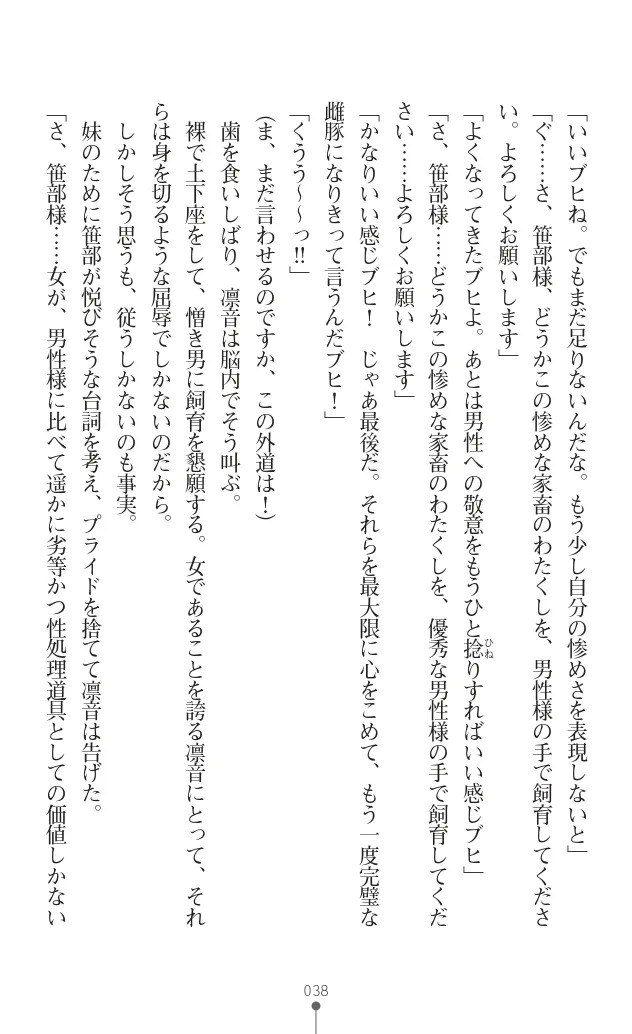 「いいブヒね。でもまだ足りないんだな。もう少し自分の惨めさを表現しないと」
「ぐ……さ、笹部様、どうかこの惨めな家畜のわたくしを、男性様の手で飼育してくださ
い。よろしくお願いします」
「よくなってきたブヒよ。あとは男性への敬意をもうひと捻りすればいい感じブヒ」
ひね
「さ、笹部様……どうかこの惨めな家畜のわたくしを、優秀な男性様の手で飼育してくだ
さい……よろしくお願いします」
「かなりいい感じブヒ！　じゃあ最後だ。それらを最大限に心をこめて、もう一度完璧な
雌豚になりきって言うんだブヒ！」
「くうう〜〜っ!!」
（ま、まだ言わせるのですか、この外道は！）
歯を食いしばり、凛音は脳内でそう叫ぶ。
裸で土下座をして、憎き男に飼育を懇願する。女であることを誇る凛音にとって、それ
らは身を切るような屈辱でしかないのだから。
しかしそう思うも、従うしかないのも事実。
妹のために笹部が悦びそうな台詞を考え、プライドを捨てて凛音は告げた。
「さ、笹部様……女が、男性様に比べて遥かに劣等かつ性処理道具としての価値しかない
038